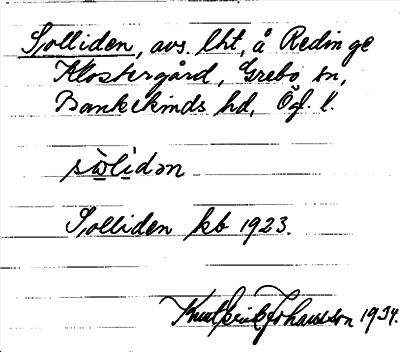 Solliden, avs. lht, å Redinge
Klostergård, Grebo sn,
Bankekinds hd, Ög. l.
sòlidən
Solliden kb 1923.
Knut Erik Johansson 1934.